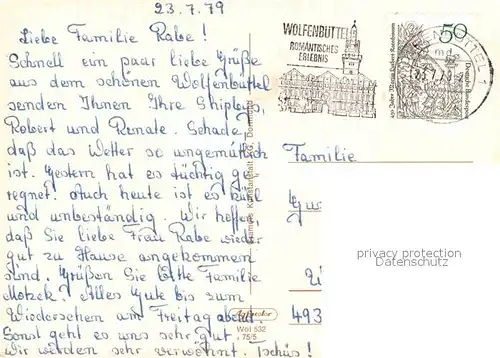 23.7.79
Liebe Familie Rabe!
Schnell ein paar liebe Grüße
aus dem schönen Wolfenbüttel
senden Ihnen Ihre Shipleys,
Robert und Renate. Schade,
daß das Wetter so ungemütlich
ist. Gestern hat es tüchtig ge
regnet. Auch heute ist es kühl
und unbeständig. Wir hoffen
daß Sie liebe Frau Rabe wieder
gut zu Hause angekommen
sind. Grüßen Sie bitte Familie
Motzek! Alles Gute bis zum
Wiedersehen am Freitag abend.
Sonst geht es uns sehr gut
wir werden sehr verwöhnt. Tschüs!
WOLFENBÜTTEL
ROMANTISCHES
ERLEBNIS
50
Deutsche Bundespost
Familie
493
privacy protection
Datenschutz
Wol 532
75/5